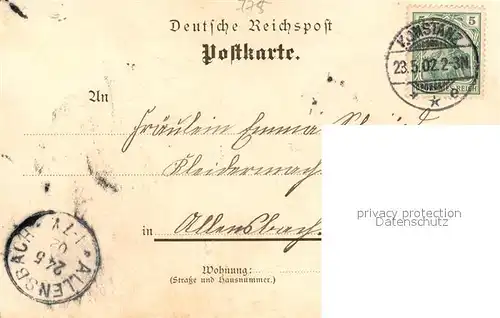 178
Deutsche Reichspost
Postkarte.
5 5
KONSTANZ
23.5.02.2-3N
REICH
* c
An
Fräulein Emma
Kleidermach.
in Allensbach.
privacy protection
oldthing.com
Wohnung:
(Straße und Hausnummer.)
ALLENSBACH
24 5
02
7-7V